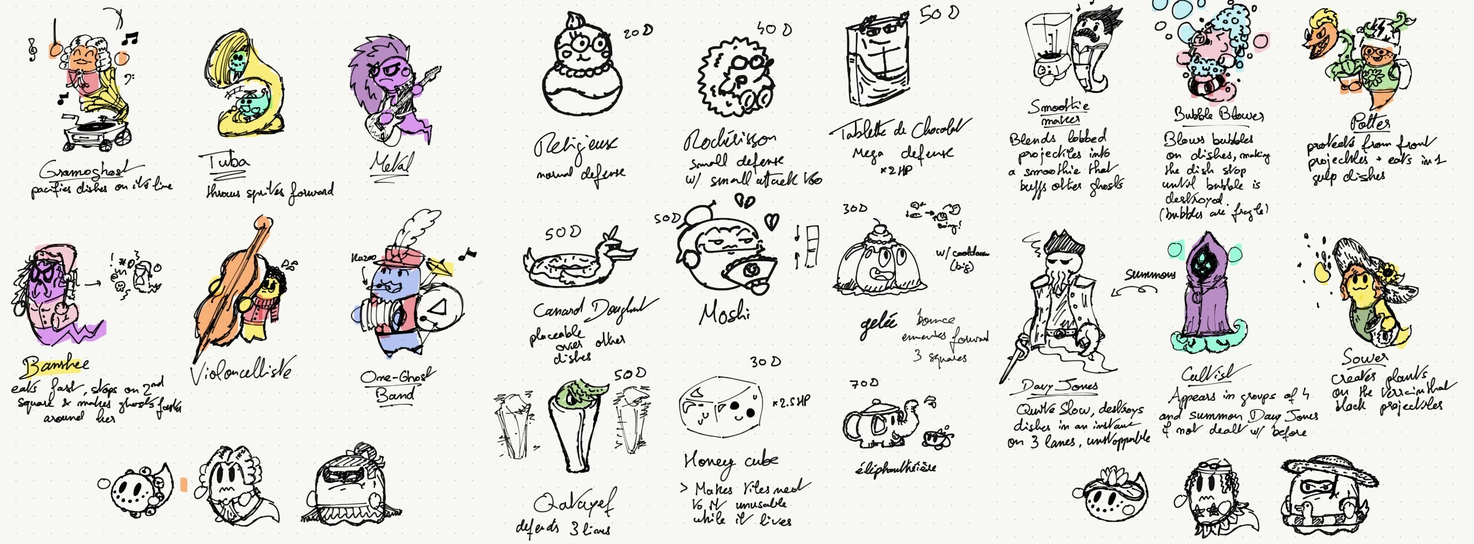 Gramoghost
pacifies dishes on its line
Tuba
throws sprites forward
Metal
Banshee
eats fast, stops on 2nd
square & makes ghosts faster
around her
Violoncelliste
Kazoo
One-Ghost
Band
20D
Religieuse
normal defense
40D
Rochérisson
small defense
w/ small attack too
50D
Tablette de Chocolat
Mega defense
x2HP
50D
Canard Doughnut
placeable
over other
dishes
50D
Moshi
30D
Boing!
w/ cooldown
(big)
gelée
bounce
enemies forward
3 squares
50D
Qatayef
defends 3 lines
30D
x2.5HP
Honey cube
> Makes tiles next
to it unusable
while it lives
70D
éléphanthéière
Smoothie
maker
Blends lobbed
projectiles into
a smoothie that
buffs other ghosts
Bubble Blower
Blows bubbles
on dishes, making
the dish stop
until bubble is
destroyed
(bubbles are fragile)
Potter
protects from front
projectiles + eats in 1
gulp dishes
Davy Jones
Quite Slow, destroys
dishes in an instant
on 3 lanes, unstoppable
Summons
Cultist
Appears in groups of 4
and summon Davy Jones
if not dealt w/ before
Sower
creates plants
on the terrain that
block projectiles